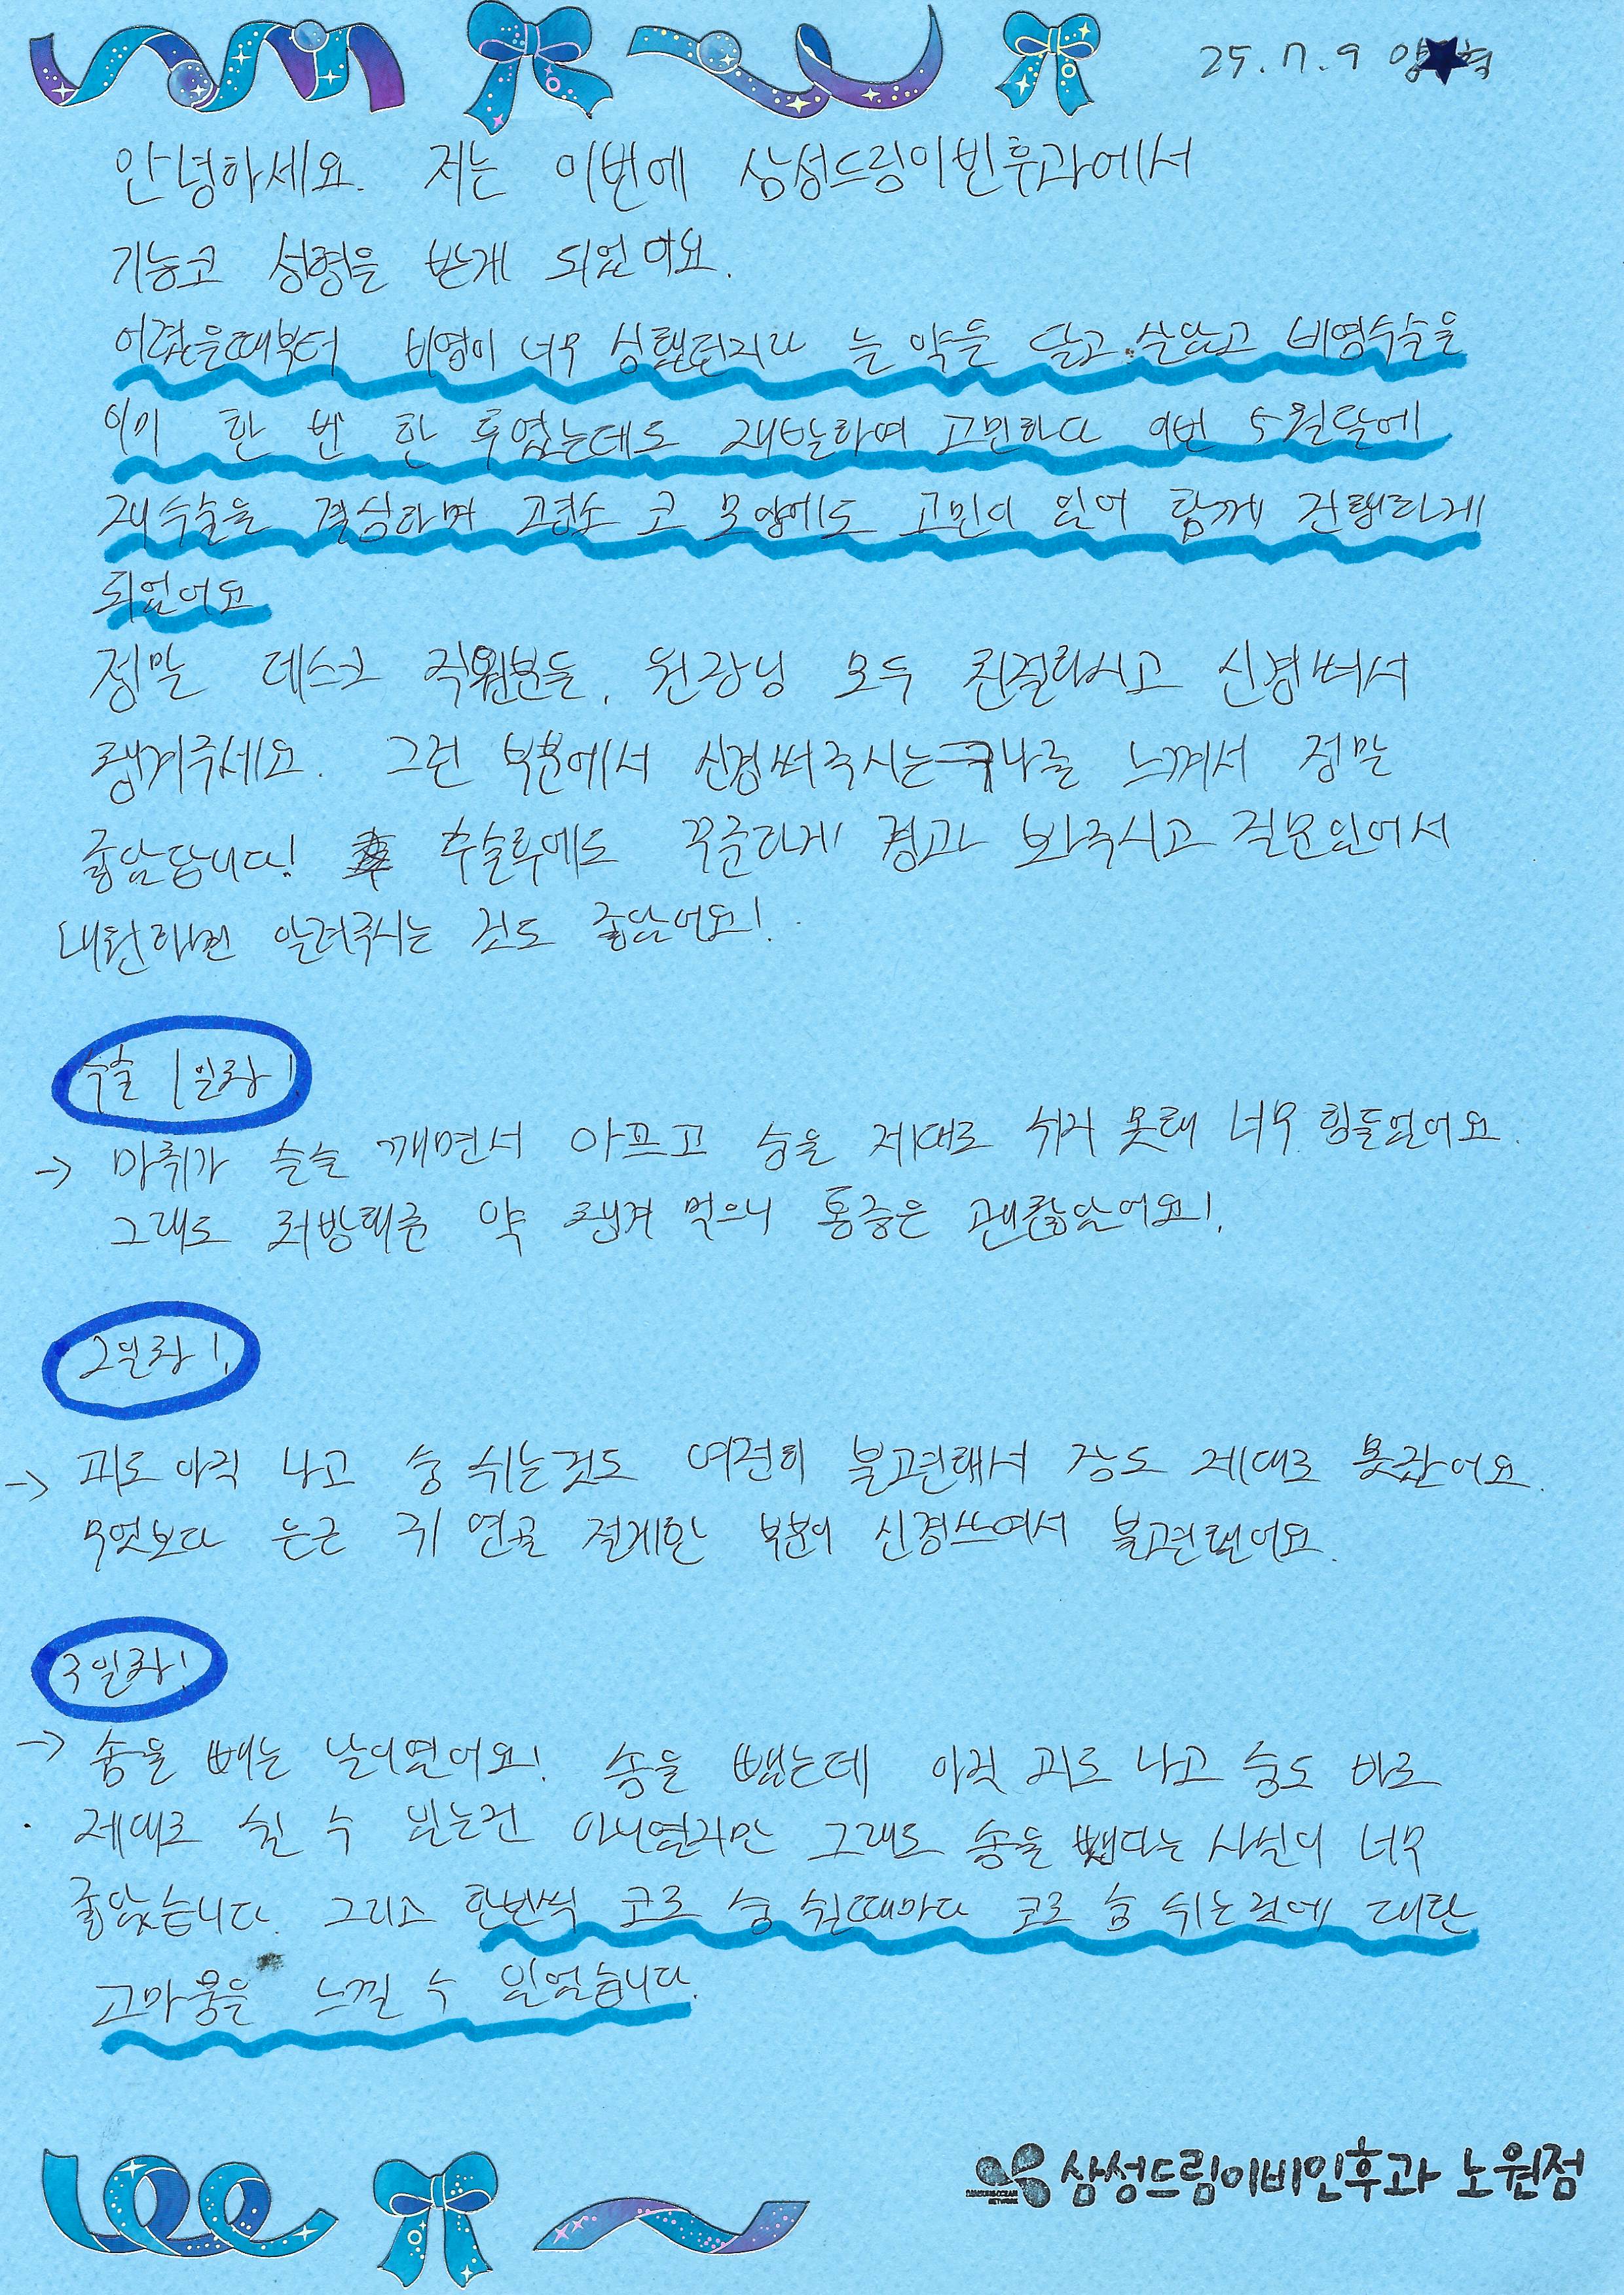 25.7.9 양★혁
안녕하세요. 저는 이번에 삼성드림이빈후과에서
기능코 성형을 받게 되었어요.
어렸을때부터 비염이 너무 심했던지라 늘 약을 달고 살았고 비염수술을
이미 한 번 한 후였는데도 재발하여 고민하다 이번 5월달에
재수술을 결심하며 평소 코 모양에도 고민이 있어 함께 진행하게
되었어요
정말 데스크 직원분들, 원장님 모두 친절하시고 신경써서
챙겨주세요. 그런 부분에서 신경써주시는구나를 느껴서 정말
좋았답니다! 수술후에도 꾸준하게 경과 봐주시고 질문있어서
내원하면 알려주시는 것도 좋았어요!
수술 1일차!
→ 마취가 슬슬 깨면서 아프고 숨을 제대로 쉬지 못해 너무 힘들었어요.
그래도 처방해준 약 챙겨 먹으니 통증은 괜찮았어요!
2일차!
→ 피도 아직 나고 숨 쉬는것도 여전히 불편해서 잠도 제대로 못잤어요.
무엇보다 은근 귀 연골 절개한 부분이 신경쓰여서 불편했어요.
3일차!
→ 솜을 빼는 날이였어요! 솜을 뺐는데 아직 피도 나고 숨도 바로
제대로 쉴 수 있는건 아니였지만 그래도 솜을 뺐다는 사실이 너무
좋았습니다. 그리고 한번씩 코로 숨 쉴때마다 코로 숨 쉬는것에 대한
고마움을 느낄 수 있었습니다.
삼성드림이비인후과 노원점